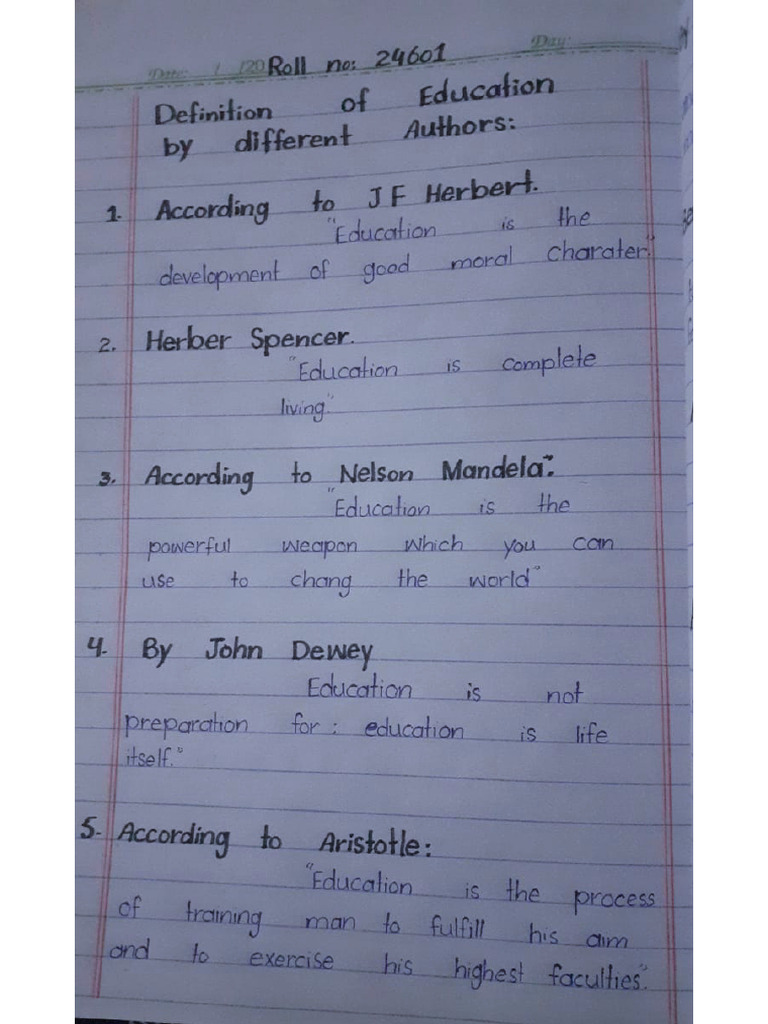 Date: / /20 Roll no: 24601 Day:
Definition of Education
by different Authors:
1. According to J F Herbert.
"Education is the
development of good moral charater."
2. Herber Spencer.
"Education is complete
living"
3. According to Nelson Mandela:
"Education is the
powerful weapon which you can
use to chang the world"
4. By John Dewey
Education is not
preparation for : education is life
itself."
5. According to Aristotle:
"Education is the process
of training man to fulfill his aim
and to exercise his highest faculties".